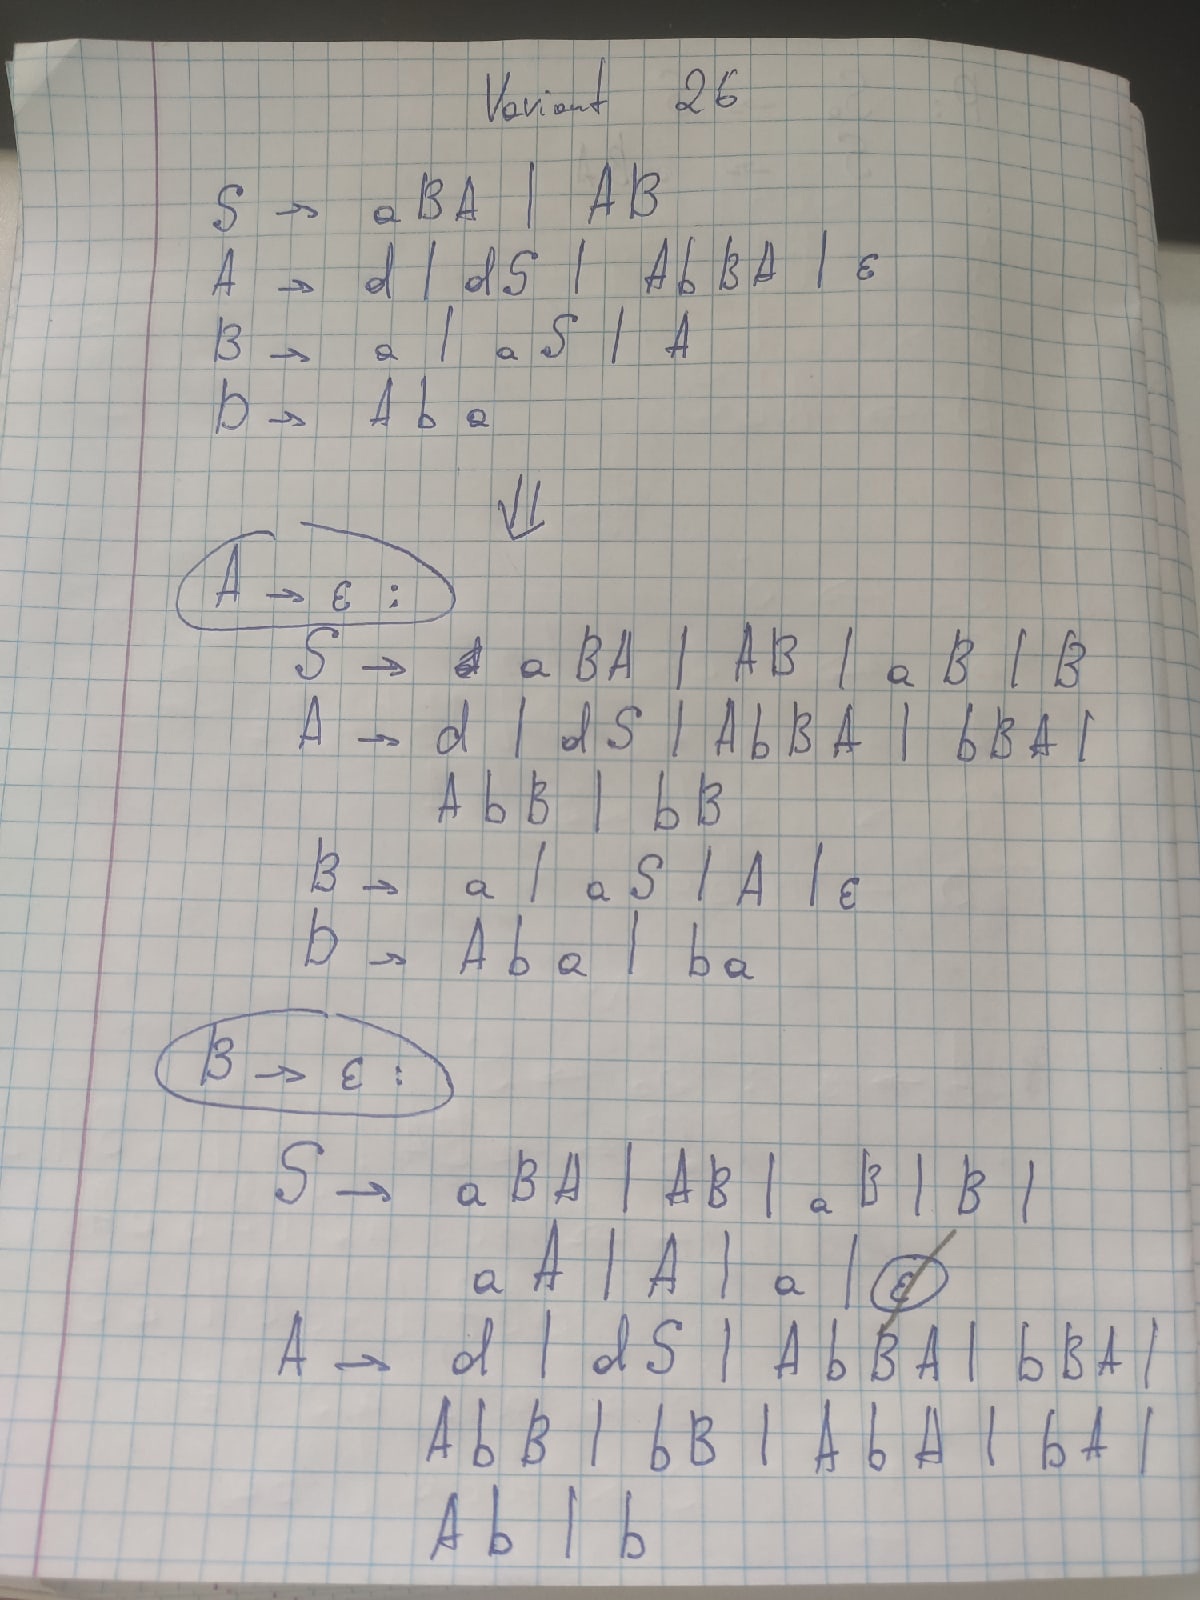 Variant 26
S → aBA | AB
A → d | dS | AbBA | ε
B → a | aS | A
D → Aba
⇓
A → ε :
S → aBA | AB | aB | B
A → d | dS | AbBA | bBA |
AbB | bB
B → a | aS | A | ε
D → Aba | ba
B → ε :
S → aBA | AB | aB | B |
aA | A | a | ε
A → d | dS | AbBA | bBA |
AbB | bB | AbA | bA |
Ab | b